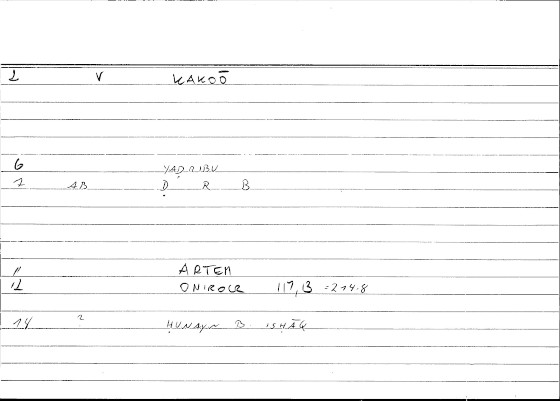 1 V KAKOŌ
6 YAḌRIBU
7 AB Ḍ R B
11 ARTEM
12 ONIROCR 117,13 = 214.8
14 2 ḤUNAYN B ISḤĀQ